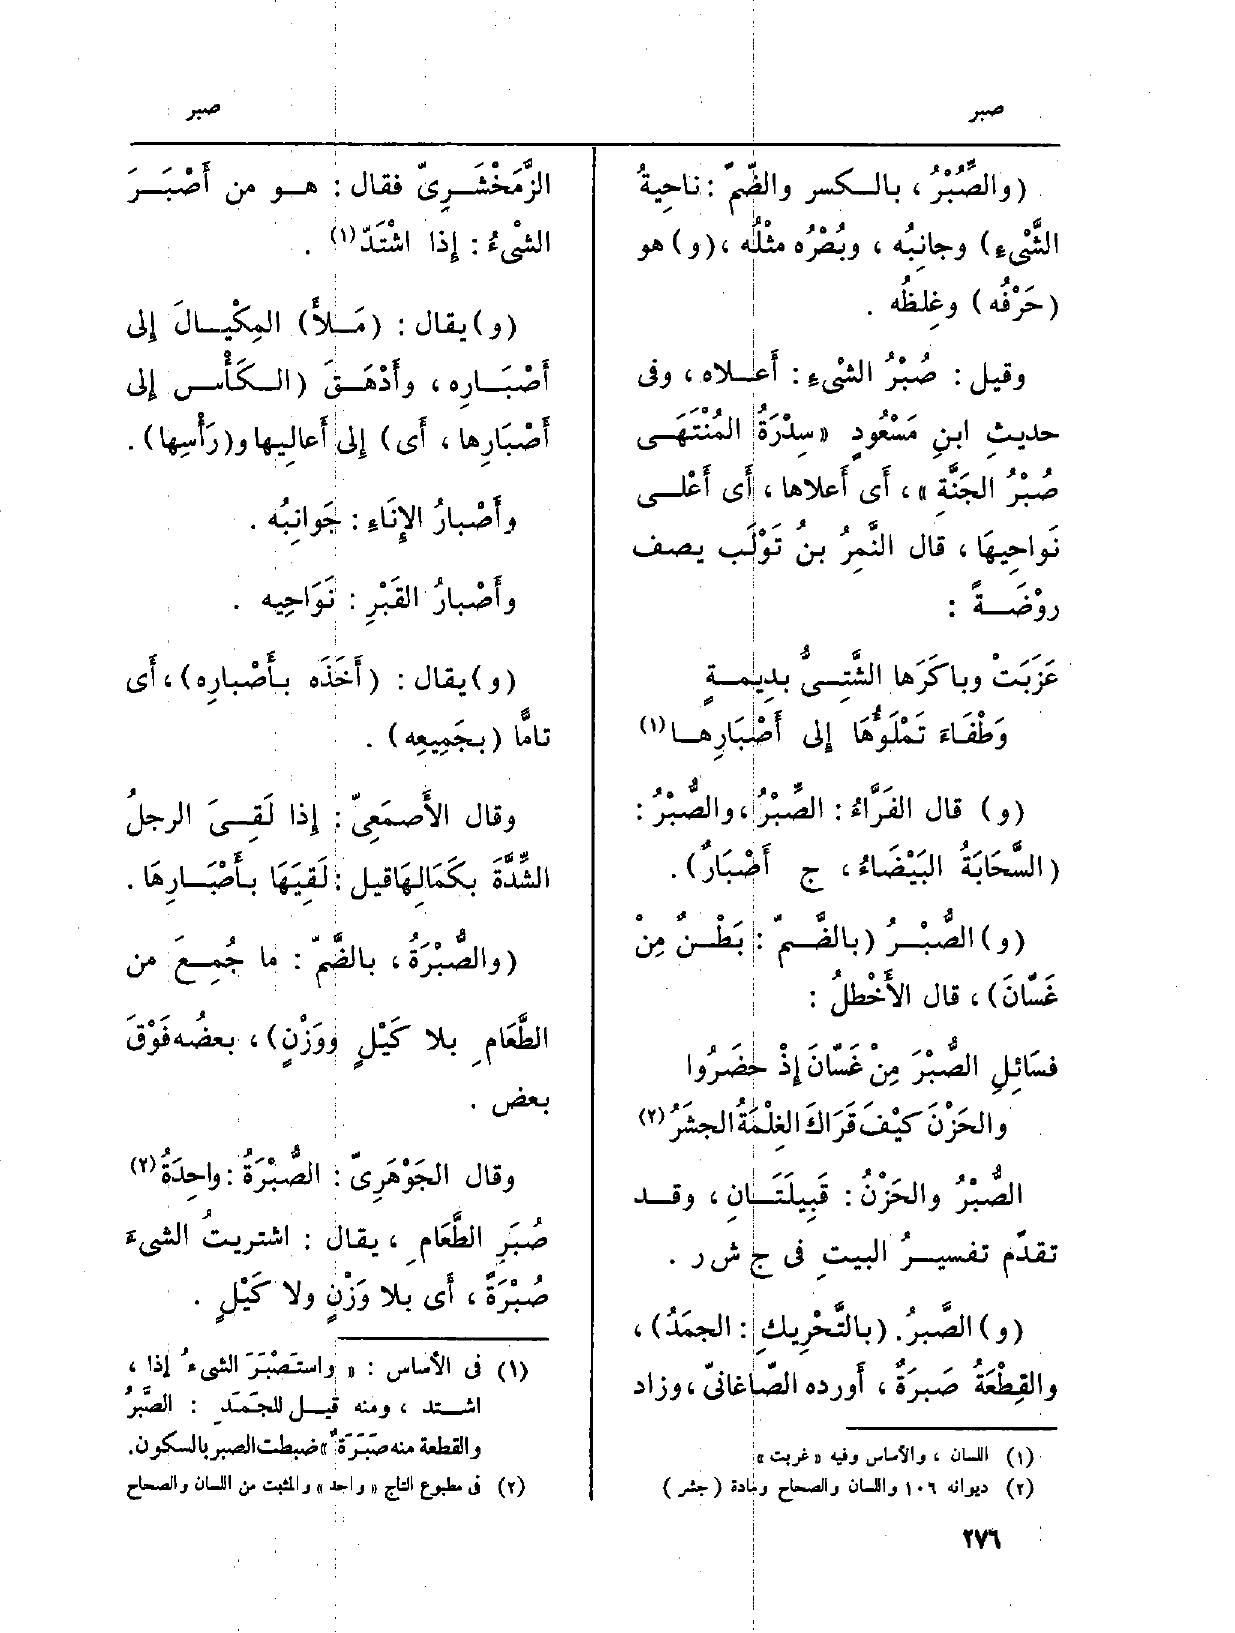 صبر
صبر
(والصُّبْرُ، بالكسر والضّمّ: ناحِيةُ
الشَّىْءِ) وجانِبُه، وبُصْرُه مثْلُه، (و) هو
(حَرْفُه) وغِلظُه.
وقيل: صُبْرُ الشىْءِ: أَعلاه، وفى
حديثِ ابنِ مَسْعُودٍ «سِدْرَةُ المُنْتَهَى
صُبْرُ الجَنَّةِ»، أَى أَعلاها، أَى أَعْلى
نَواحِيهَا، قال النَّمِرُ بنُ تَوْلَب يصف
روْضَةً:
عَزَبَتْ وبَاكَرَها الشَّتِىُّ بدِيمةٍ
وَطْفَاءَ تَمْلَؤُهَا إِلى أَصْبَارِها(١)
(و) قال الفَرَّاءُ: الصِّبْرُ، والصُّبْرُ:
(السَّحَابَةُ البَيْضَاءُ، ج أَصْبَارٌ).
(و) الصُّبْرُ (بالضَّمّ: بَطْنٌ مِنْ
غَسَّانَ)، قال الأَخْطلُ:
فسَائِلِ الصُّبْرَ مِنْ غَسَّانَ إِذْ حَضَرُوا
والحَزْنَ كيْفَ قَرَاكَ الغِلْمَةُ الجشَرُ(٢)
الصُّبْرُ والحَزْنُ: قَبِيلَتَانِ، وقد
تقدّم تفسيرُ البيتِ فى ج ش ر.
(و) الصَّبَرُ. (بالتَّحْرِيكِ: الجمَدُ)،
والقِطْعَةُ صَبرَةٌ، أَورده الصّاغانىّ، وزاد
(١) اللسان، والأساس وفيه «غربت»
(٢) ديوانه ١٠٦ واللسان والصحاح ومادة (جشر)
الزَّمَخْشَرِىّ فقال: هو من أَصْبَرَ
الشىْءُ: إِذا اشْتَدّ(١).
(و) يقال: (مَلأَ) المِكْيالَ إِلى
أَصْبَارِه، وأَدْهَقَ (الكَأْسَ إِلى
أَصْبَارِها، أَى) إِلى أَعالِيها و(رَأْسِها).
وأَصْبارُ الإِنَاءِ: جَوانِبُه.
وأَصْبارُ القَبْرِ: نَوَاحِيه.
(و) يقال: (أَخَذَه بأَصْبارِه)، أَى
تامًّا (بجَمِيعِه).
وقال الأَصمَعِىّ: إِذا لَقِىَ الرجلُ
الشِّدَّةَ بكمَالِهَا قيل: لَقِيَهَا بأَصْبَارِهَا.
(والصُّبْرَةُ، بالضَّمّ: ما جُمِعَ من
الطَّعَامِ بلا كَيْلٍ ووَزْنٍ)، بعضُه فَوْقَ
بعض.
وقال الجَوْهَرِىّ: الصُّبْرَةُ: واحِدَةُ(٢)
صُبَرِ الطَّعَامِ، يقال: اشتريتُ الشىءَ
صُبْرَةً، أَى بلا وَزْنٍ ولا كَيْلٍ.
(١) فى الأساس: «واستَصْبَرَ الشىءُ إذا،
اشتد، ومنه قيل للجَمَدِ: الصَّبْرُ
والقطعة منه صَبْرَةٌ» ضبطت الصبر بالسكون.
(٢) فى مطبوع التاج «واحد» والمثبت من اللسان والصحاح
٢٧٦